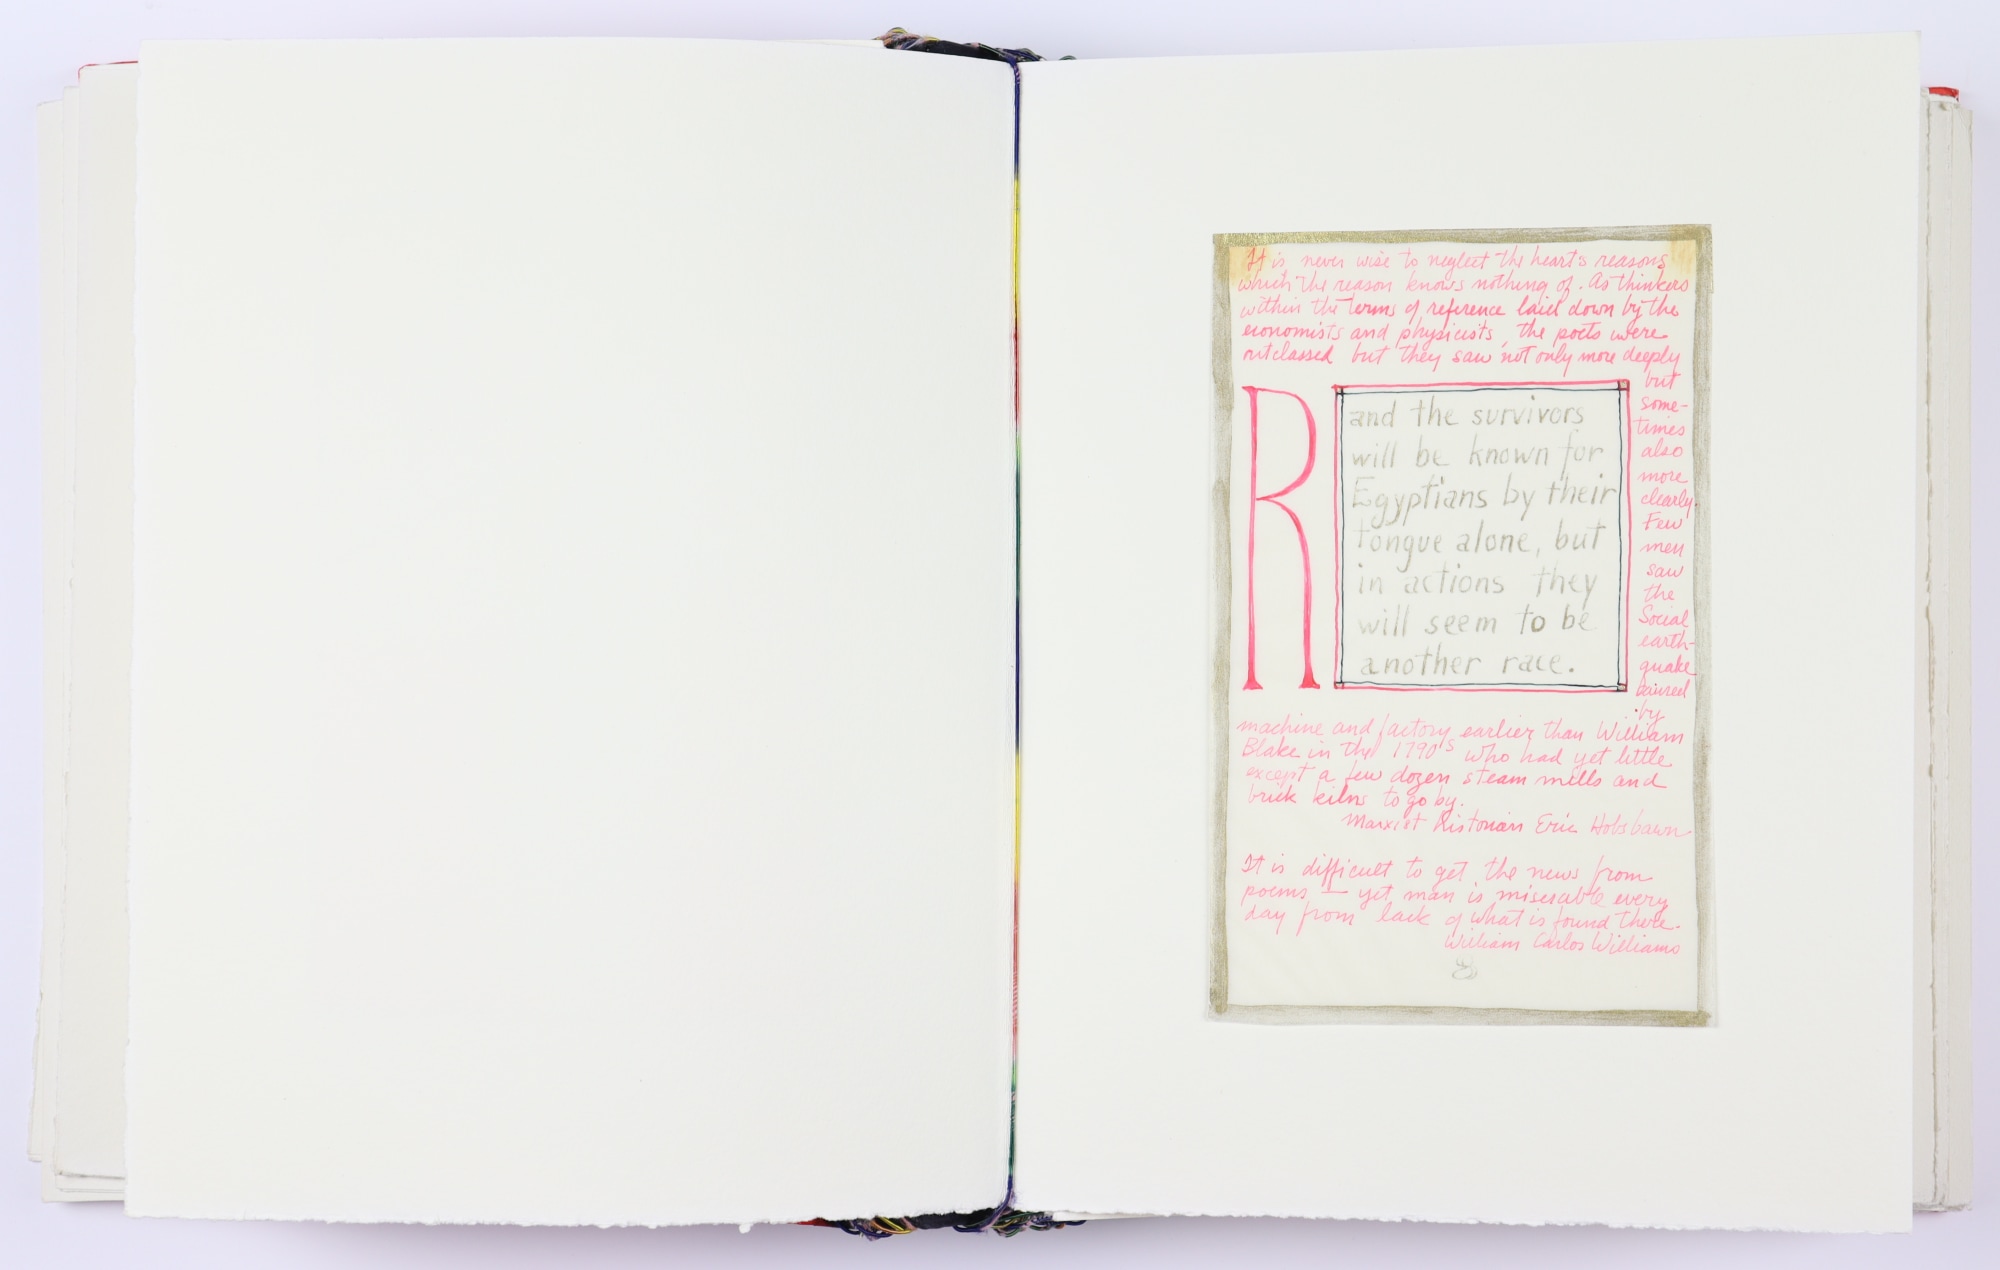 It is never wise to neglect the heart's reasons
which the reason knows nothing of. As thinkers
within the terms of reference laid down by the
economists and physicists, the poets were
outclassed but they saw not only more deeply
but
some-
times
also
more
clearly.
Few
men
saw
the
Social
earth-
quake
caused
by
machine and factory earlier than William
Blake in the 1790's who had yet little
except a few dozen steam mills and
brick kilns to go by.
Marxist Historian Eric Hobsbawn
R
and the survivors
will be known for
Egyptians by their
tongue alone, but
in actions they
will seem to be
another race.
It is difficult to get the news from
poems — yet man is miserable every
day from lack of what is found there.
William Carlos Williams